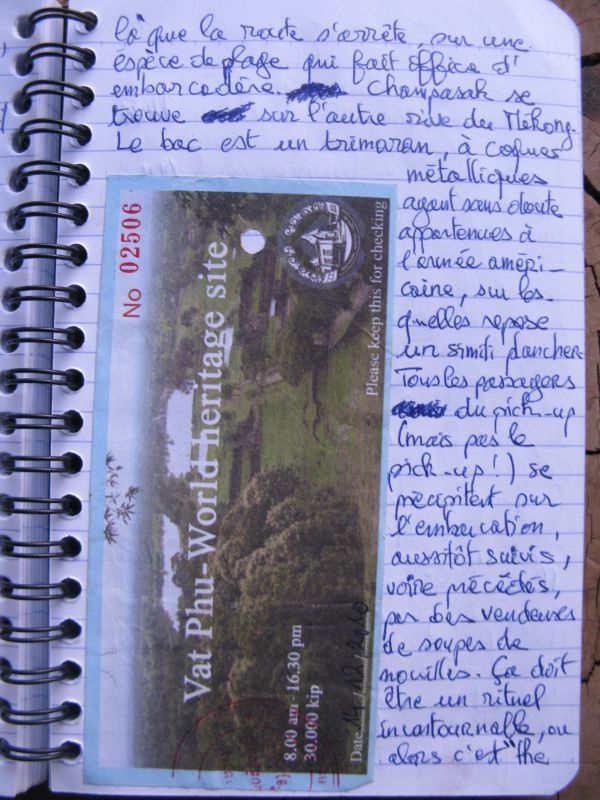 là que la route s'arrête, sur une
espèce de plage qui fait office d'
embarcadère. Champasak se
trouve sur l'autre rive du Mékong.
Le bac est un trimaran, à coques
métalliques
ayant sans doute
appartenues à
l'armée améri-
caine, sur les-
quelles repose
un simili plancher.
Tous les passagers
du pick-up
(mais pas le
pick-up !) se
précipitent sur
l'embarcation,
aussitôt suivis,
voire précédés,
par des vendeuses
de soupes de
nouilles. Ça doit
être un rituel
incontournable, ou
alors c'est "the
No 02506
Vat Phu-World heritage site
Please keep this for checking
8.00 am - 16.30 pm
30.000 kip
Date 14/12/2010